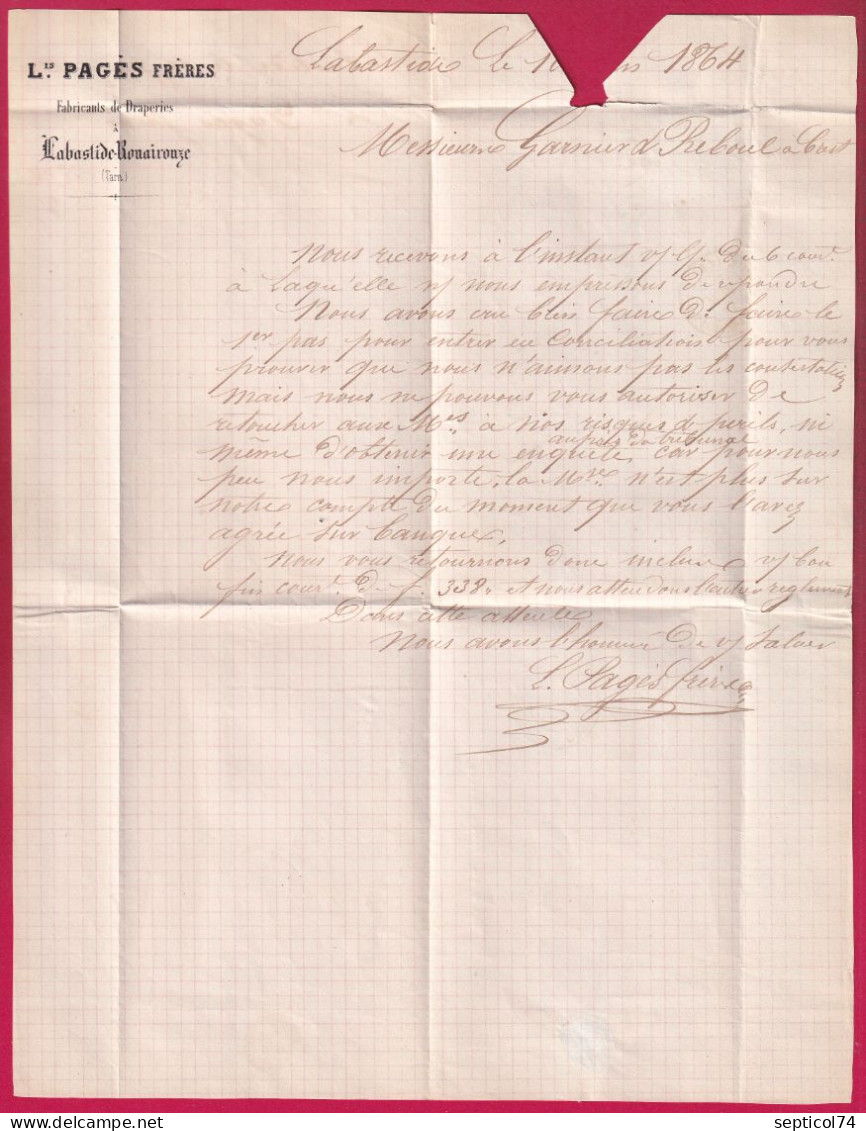 Lis PAGÈS FRÈRES
Fabricants de Draperies
À
Labastide-Rouairouze
(Tarn)
Labastide Le 10 1864
Messieurs Garnier & Reboul à
Nous recevons à l'instant v/ du 6 cour.t
à laqu'elle n/ nous empressons de repondre
Nous avons cru bien faire de faire le
1er pas pour entrer en Conciliation pour vous
prouver que nous n'aimons pas les contestations
Mais nous ne pouvons vous autoriser de
retoucher aux M.es à nos risques & perils, ni
auprès du tribunal
même d'obtenir une enquête, car pour nous
peu nous importe, la M.se n'est plus sur
notre compte du moment que vous l'avez
agrée sur banque,
Nous vous retournons donc inclus v/ bon
fin cour.t de f. 338, et nous attendons règlement
Dans cette attente
Nous avons l'honneur de v/ saluer
L. Pagès frères
septicol74